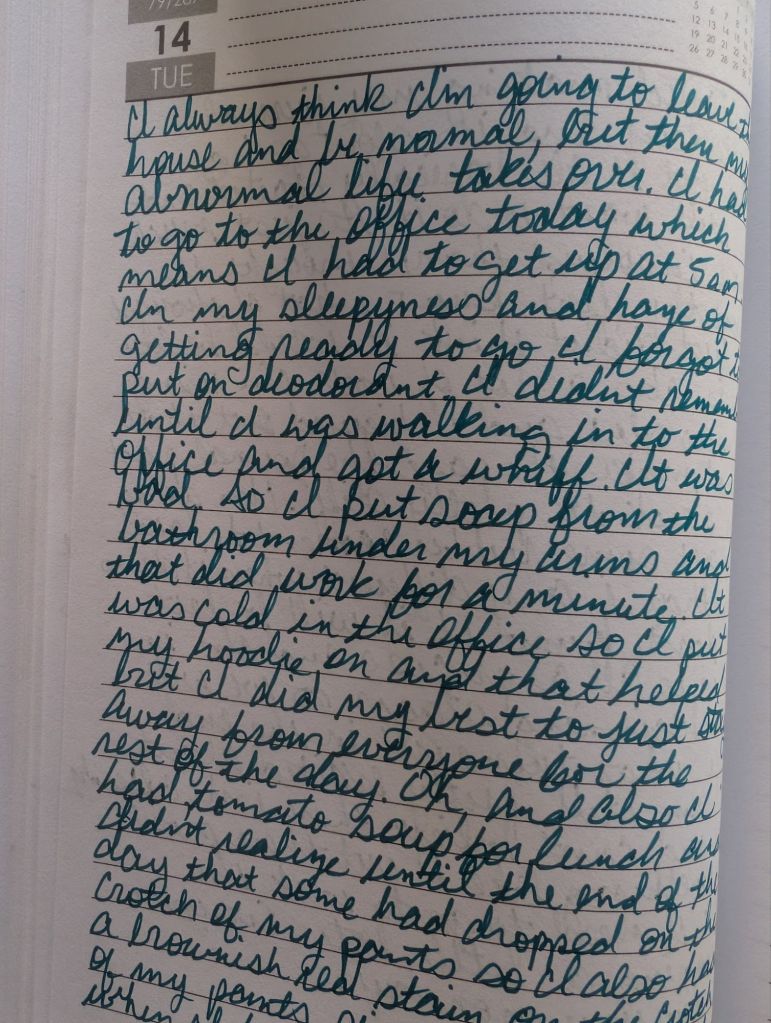 79/287
14
TUE
5 6 7 8
12 13 14 15
19 20 21 22
26 27 28 29 30
I always think I'm going to leave
house and be normal, but then my
abnormal life takes over. I had
to go to the office today which
means I had to get up at 5am.
In my sleepyness and haze of
getting ready to go I forgot t
put on deodorant. I didn't remem
until I was walking in to the
office and got a whiff. It was
bad. So I put soap from the
bathroom under my arms and
that did work for a minute. It
was cold in the office so I put
my hoodie on and that helped
but I did my best to just
away from everyone for the
rest of the day. Oh, and also I
had tomato soup for lunch and
didn't realize until the end of the
day that some had dropped on the
crotch of my pants so I also ha
a brownish red stain on the crotch
of my pants
when